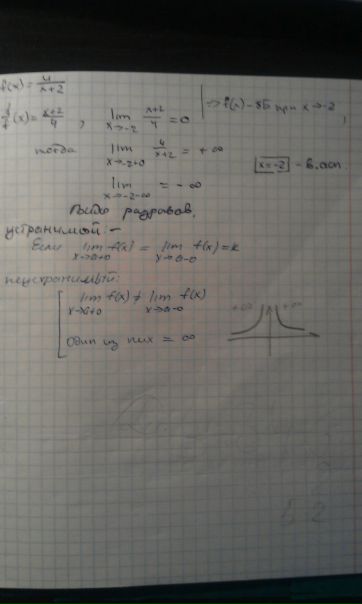 f(x) = 4/(x+2)
1/f(x) = (x+2)/4 , lim x→-2 (x+2)/4 = 0 | => f(x) - ББ при x→-2,
тогда lim x→-2+0 4/(x+2) = +∞
lim x→-2-∞ = -∞ x=-2 - в.ас.
Виды разрывов.
устранимой: -
Если lim x→a+0 f(x) = lim x→a-0 f(x) = k
неустранимый:
[ lim x→a+0 f(x) ≠ lim x→a-0 f(x)
один из них = ∞
+∞ +∞